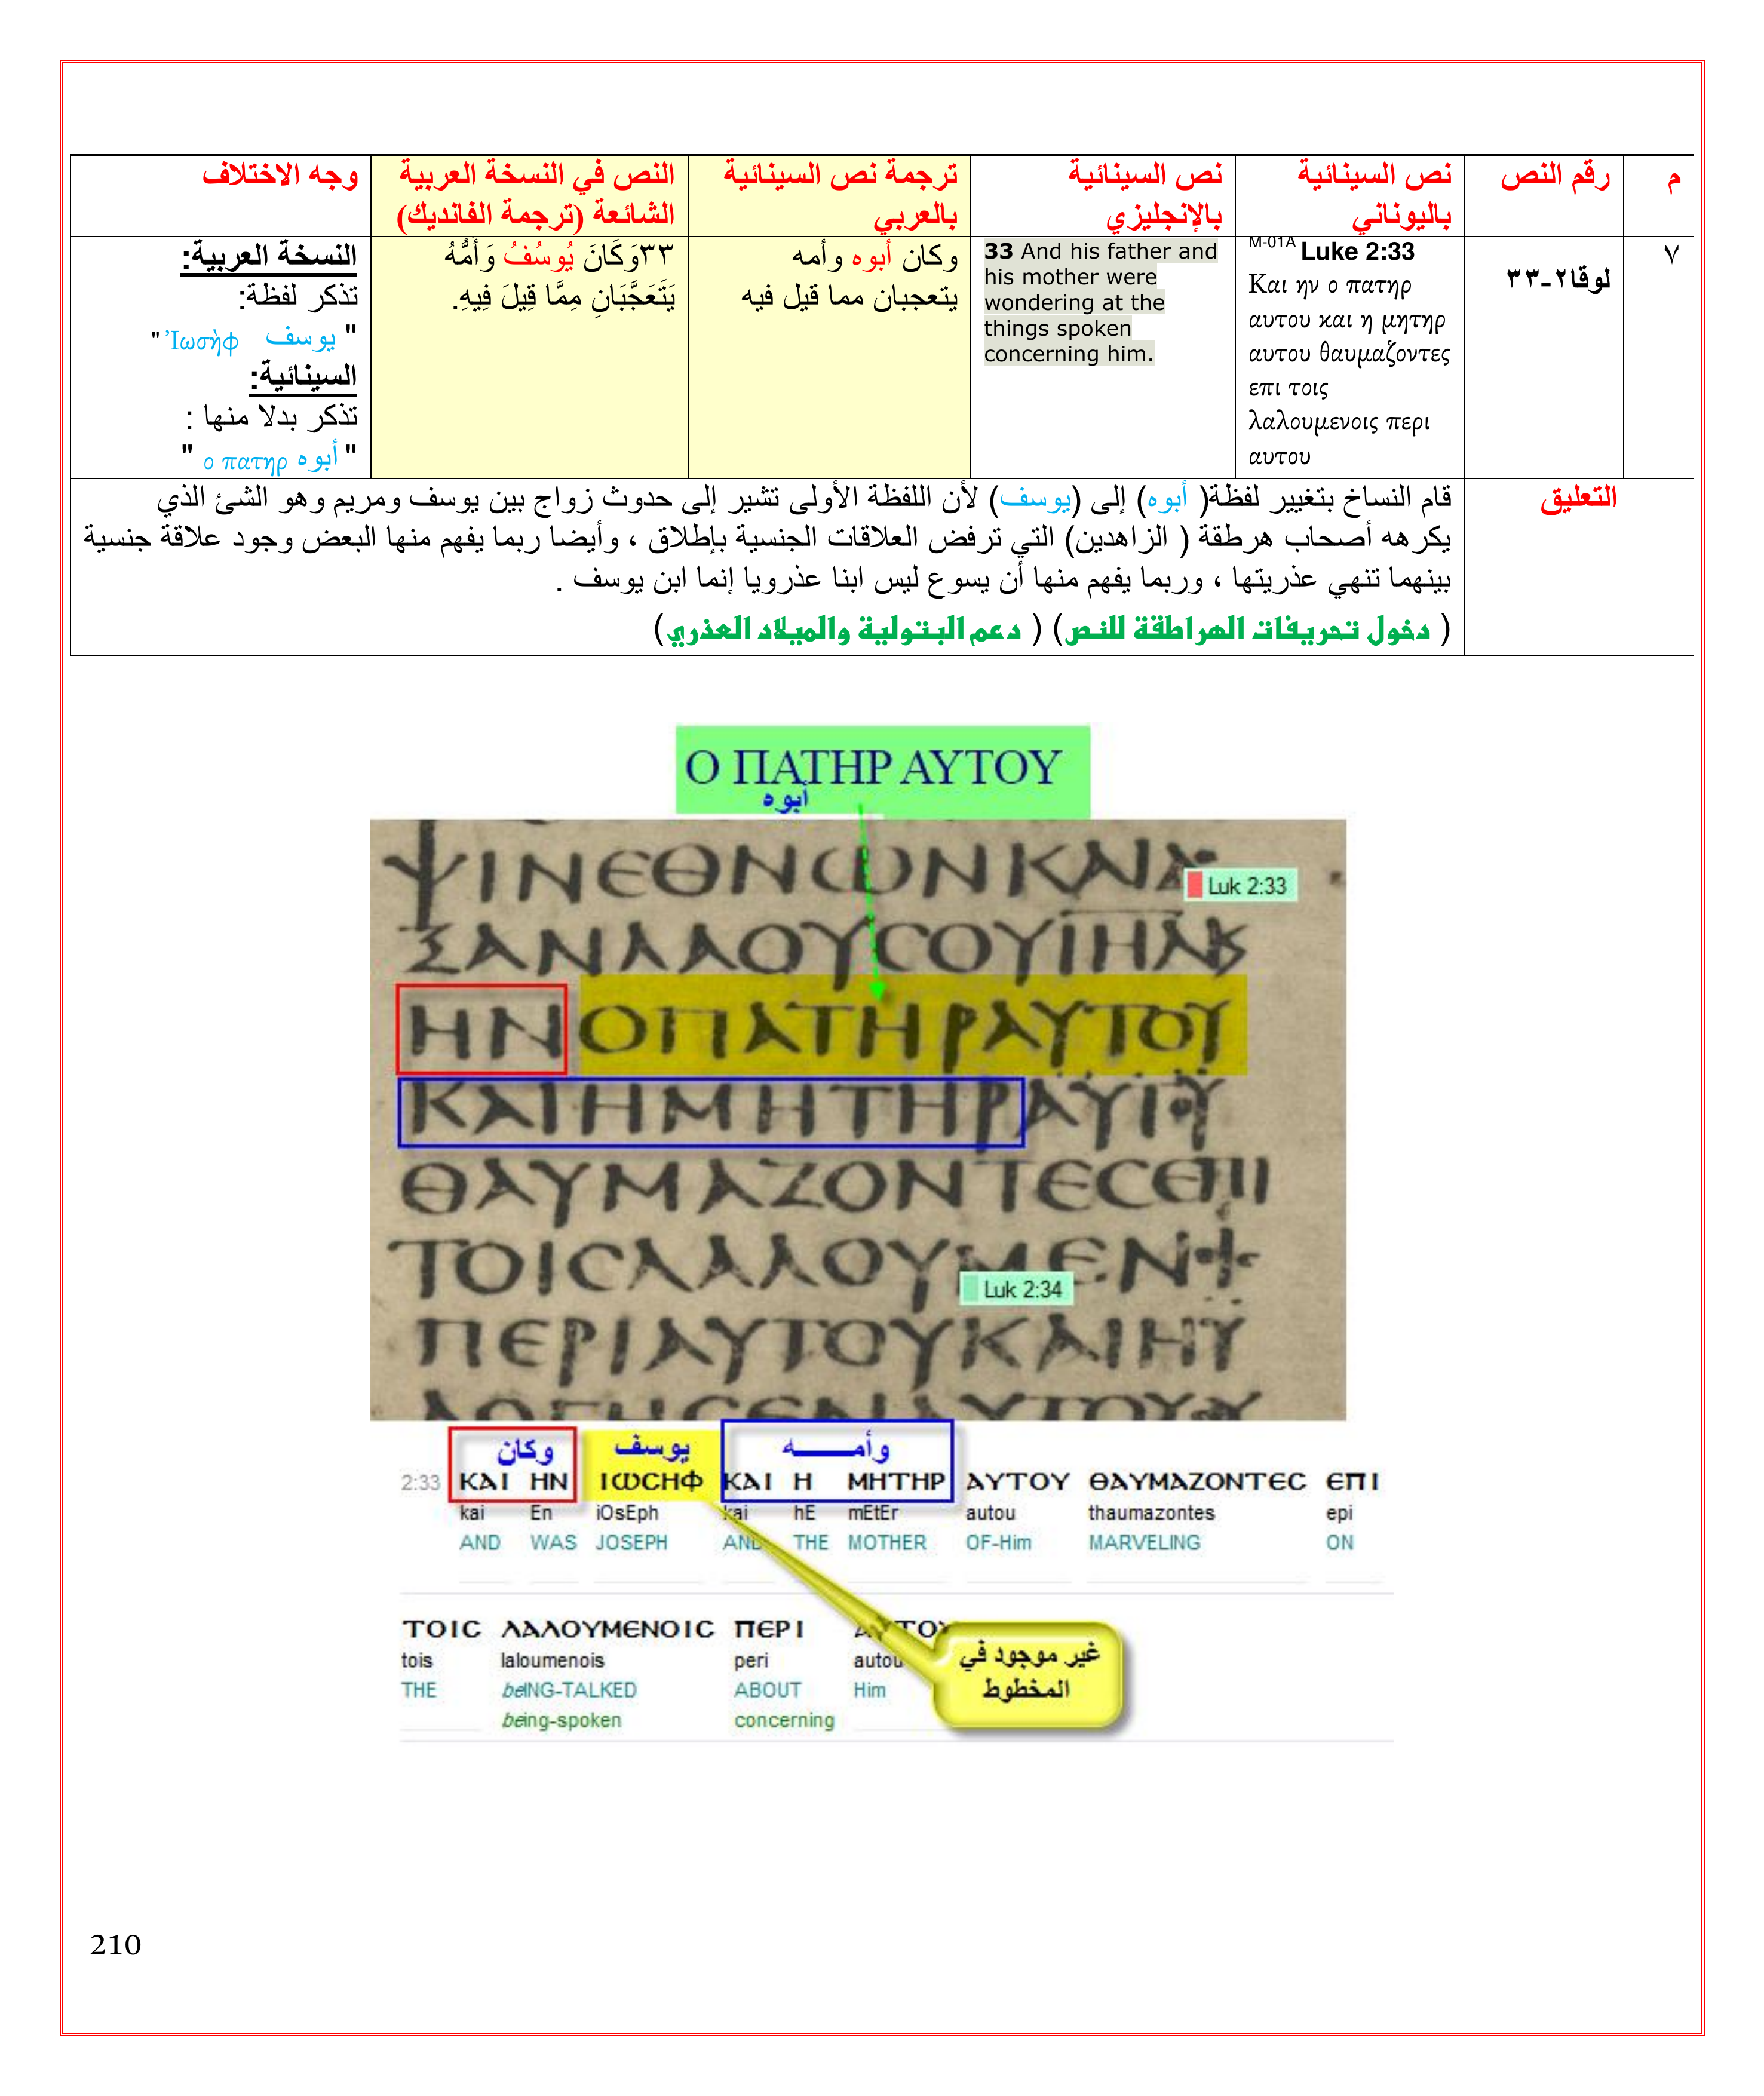 م
رقم النص
نص السينائية
باليوناني
نص السينائية
بالإنجليزي
ترجمة نص السينائية
بالعربي
النص في النسخة العربية
الشائعة (ترجمة الفانديك)
وجه الاختلاف
٧
لوقا٢-٣٣
M-01A Luke 2:33
Και ην ο πατηρ
αυτου και η μητηρ
αυτου θαυμαζοντες
επι τοις
λαλουμενοις περι
αυτου
33 And his father and
his mother were
wondering at the
things spoken
concerning him.
وكان أبوه وأمه
يتعجبان مما قيل فيه
٣٣وَكَانَ يُوسُفُ وَأُمُّهُ
يَتَعَجَّبَانِ مِمَّا قِيلَ فِيهِ.
النسخة العربية:
تذكر لفظة:
" يوسف Ἰωσὴφ "
السينائية:
تذكر بدلا منها :
" أبوه ο πατηρ "
التعليق
قام النساخ بتغيير لفظة( أبوه) إلى (يوسف) لأن اللفظة الأولى تشير إلى حدوث زواج بين يوسف ومريم وهو الشئ الذي
يكرهه أصحاب هرطقة ( الزاهدين) التي ترفض العلاقات الجنسية بإطلاق ، وأيضا ربما يفهم منها البعض وجود علاقة جنسية
بينهما تنهي عذريتها ، وربما يفهم منها أن يسوع ليس ابنا عذرويا إنما ابن يوسف .
( دخول تحريفات الهراطقة للنص) ( دعم البتولية والميلاد العذري)
Ο ΠΑΤΗΡ ΑΥΤΟΥ
أبوه
ΨΙΝΕΘΝΩΝΚΑΙΔ
Luk 2:33
ΞΑΝΛΑΟΥϹΟΥΙΗΛΚ
ΗΝΟΠΑΤΗΡΑΥΤΟΥ
ΚΑΙΗΜΗΤΗΡΑΥΤΟΥ
ΘΑΥΜΑΖΟΝΤΕϹΕΠΙ
ΤΟΙϹΛΑΛΟΥΜΕΝ
Luk 2:34
ΠΕΡΙΑΥΤΟΥΚΑΙΗΥ
ΛΟΓΗϹΕΝΑΥΤΟΥ
وكان يوسف وأمـــــه
2:33 ΚΑΙ ΗΝ ΙΩϹΗΦ ΚΑΙ Η ΜΗΤΗΡ ΑΥΤΟΥ ΘΑΥΜΑΖΟΝΤΕϹ ΕΠΙ
kai En iOsEph kai hE mEtEr autou thaumazontes epi
AND WAS JOSEPH AND THE MOTHER OF-Him MARVELING ON
ΤΟΙϹ ΛΑΛΟΥΜΕΝΟΙϹ ΠΕΡΙ ΑΥΤΟΥ
tois laloumenois peri autou
THE beING-TALKED ABOUT Him
being-spoken concerning
غير موجود في
المخطوط
210